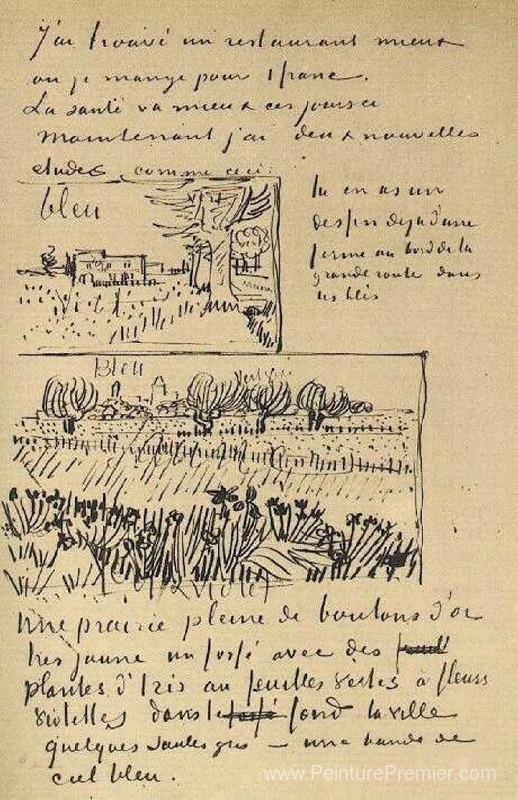 J'ai trouvé un restaurant mieux
ou je mange pour 1 franc.
La santé va mieux ces jours ci
Maintenant j'ai deux nouvelles
etudes comme ceci:
bleu
tu en as un
dessin deja d'une
ferme au bord de la
grande route dans
les blés
Bleu
Violet
Une prairie pleine de boutons d'or
tres jaune un fossé avec des
plantes d'Iris au feuilles vertes à fleurs
violettes dans le fossé fond la ville
quelques saules gris — une bande de
ciel bleu.
www.PeinturePremier.com